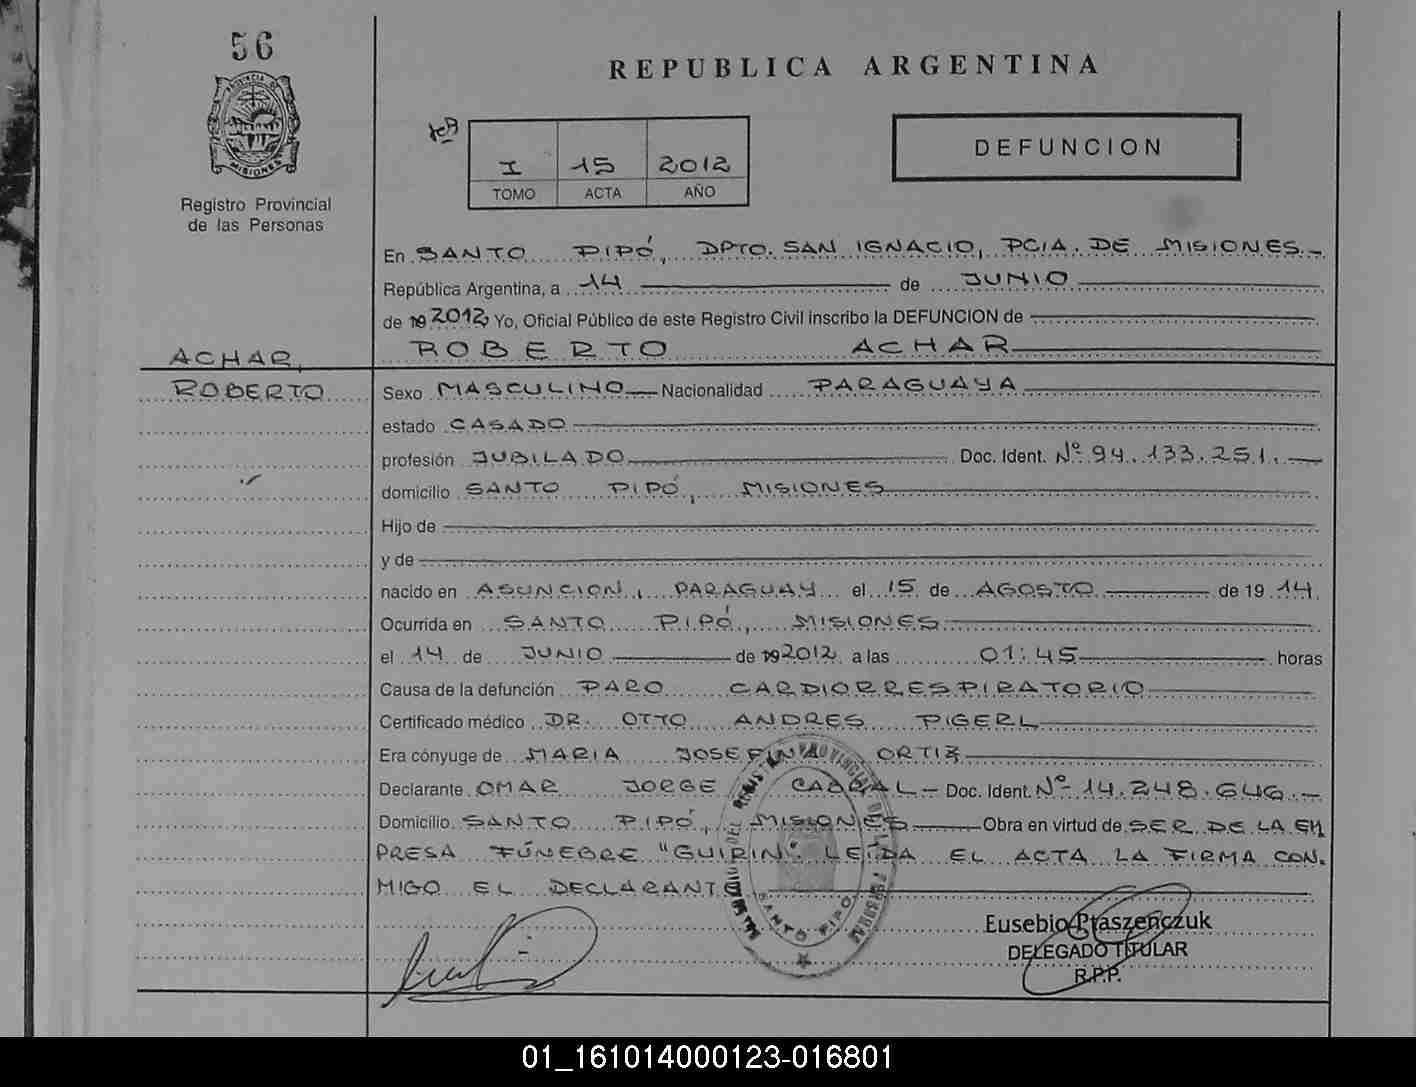 56
REPUBLICA ARGENTINA
PROVINCIA DE
MISIONES
Registro Provincial
de las Personas
I 15 2012
TOMO ACTA AÑO
DEFUNCION
En SANTO PIPÓ, DPTO. SAN IGNACIO, PCIA. DE MISIONES.-
República Argentina, a 14 de JUNIO
de 2012, Yo, Oficial Público de este Registro Civil inscribo la DEFUNCION de
ACHAR, ROBERTO ACHAR
ROBERTO Sexo MASCULINO Nacionalidad PARAGUAYA
estado CASADO
profesión JUBILADO Doc. Ident. Nº 94.133.251.-
domicilio SANTO PIPÓ, MISIONES
Hijo de
y de
nacido en ASUNCION, PARAGUAY el 15 de AGOSTO de 19 14.
Ocurrida en SANTO PIPÓ, MISIONES
el 14 de JUNIO de 2012 a las 01:45 horas
Causa de la defunción PARO CARDIORRESPIRATORIO
Certificado médico DR. OTTO ANDRES PIGERL
Era cónyuge de MARIA JOSEFINA ORTIZ
Declarante OMAR JORGE CABRAL- Doc. Ident. Nº 14.248.646.-
Domicilio SANTO PIPÓ, MISIONES Obra en virtud de SER DE LA EM
PRESA FÚNEBRE "GUIRIN". LEIDA EL ACTA LA FIRMA CON.
MIGO EL DECLARANTE
SANTO PIPO
Eusebio Ptaszenczuk
DELEGADO TITULAR
R.P.P.
01_161014000123-016801